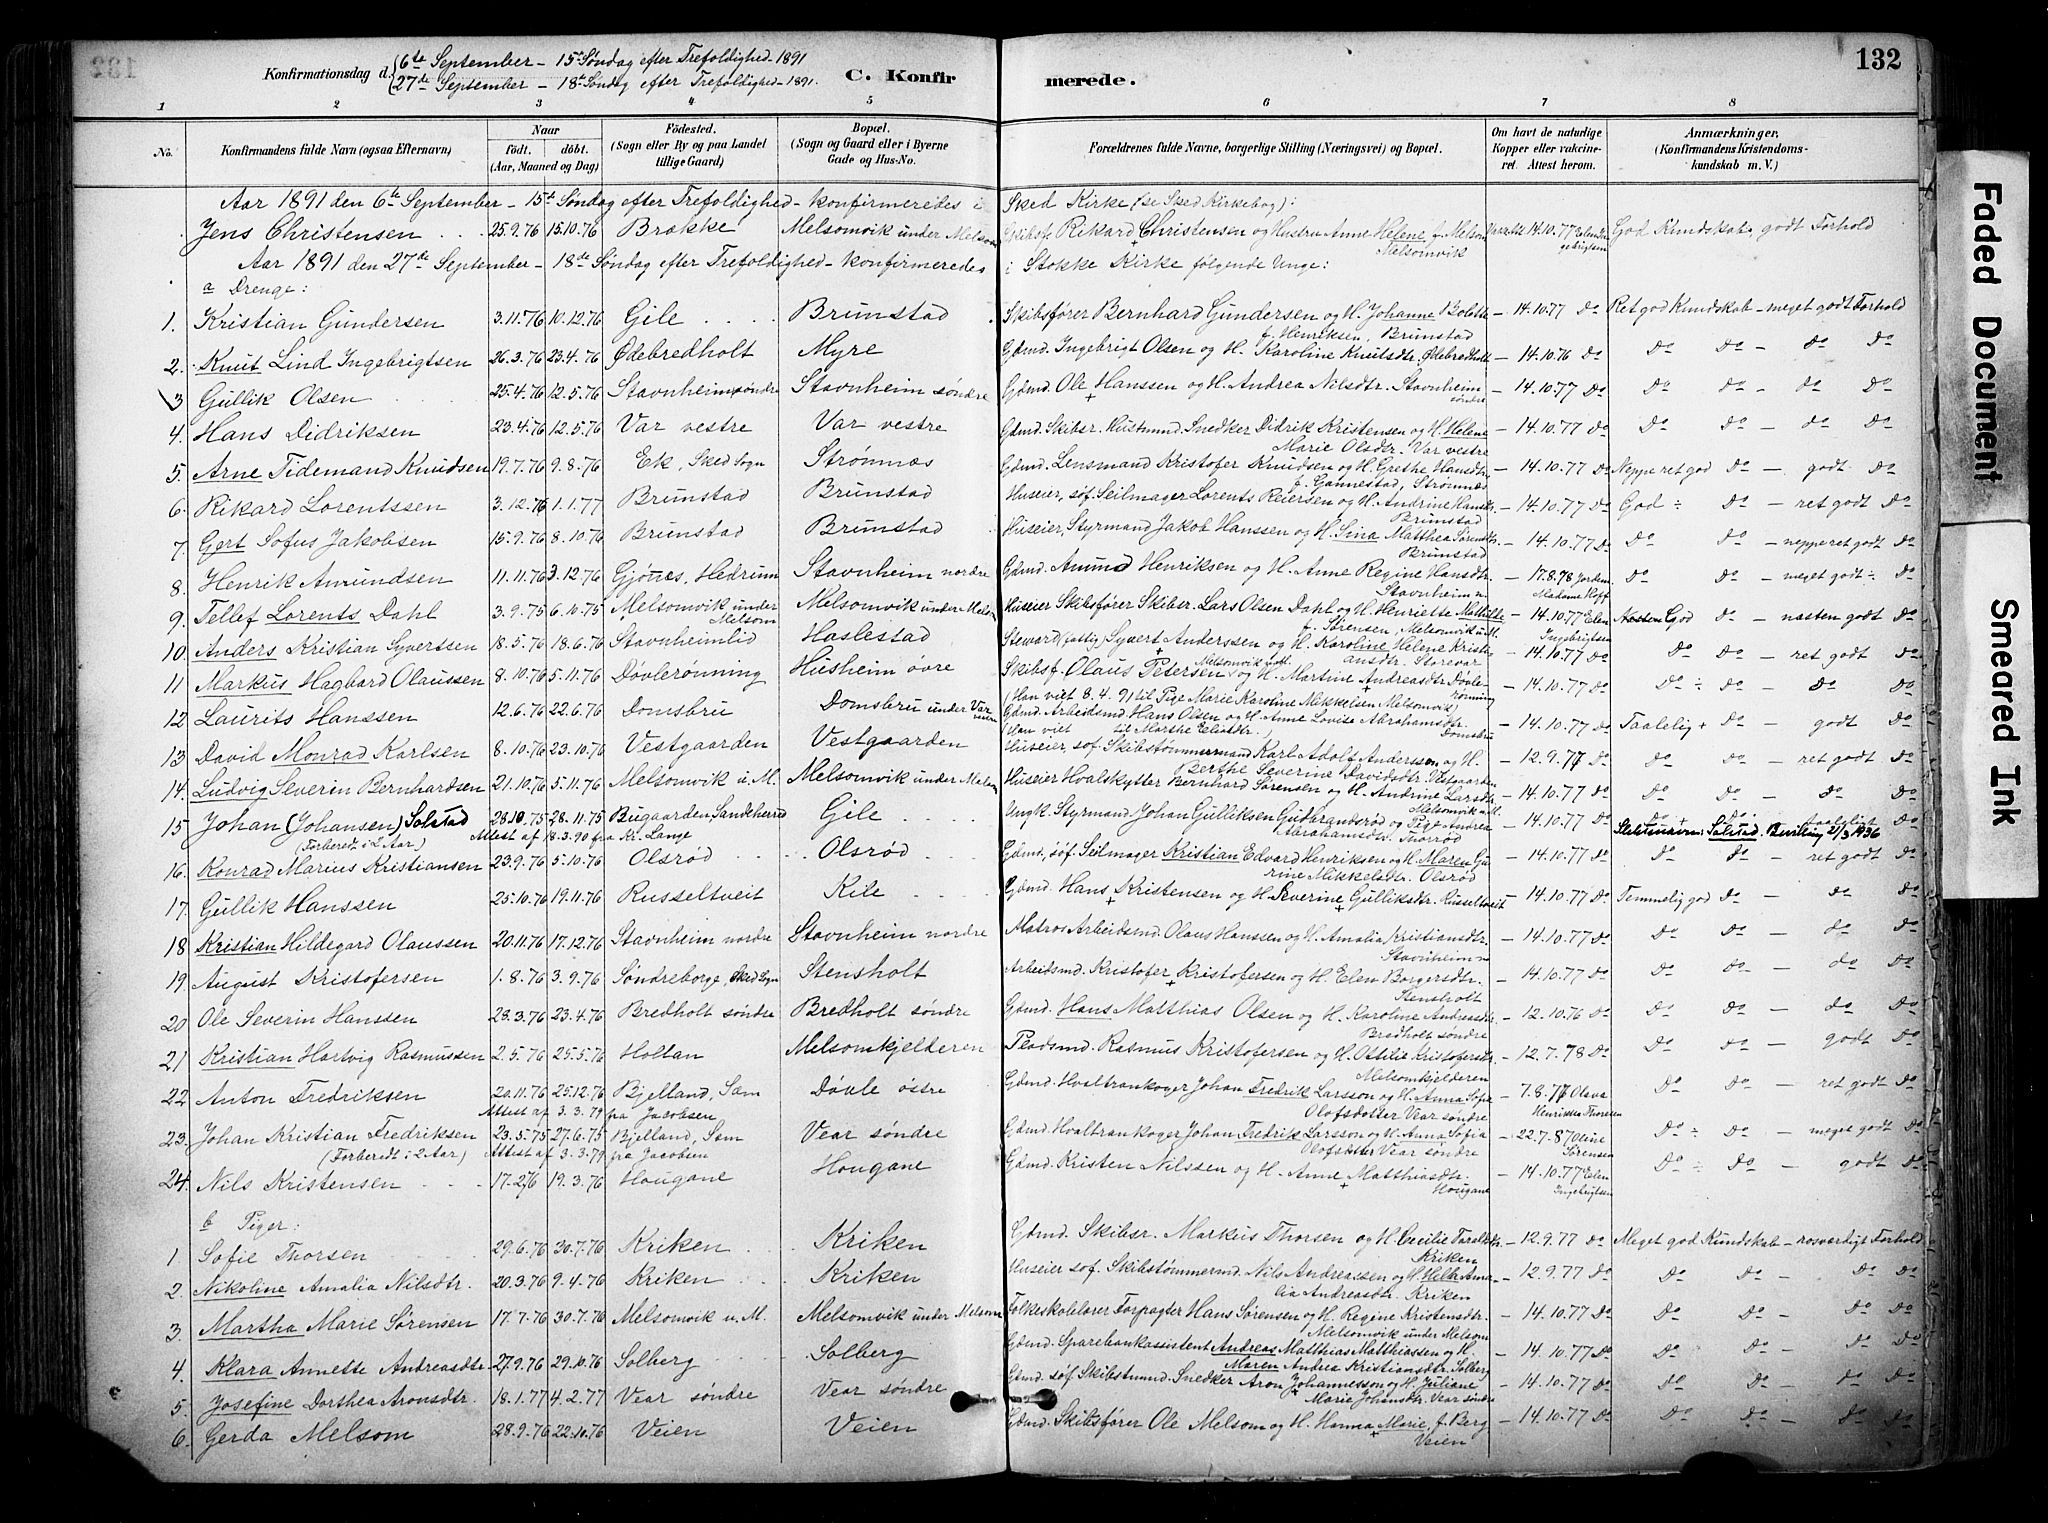 132
Konfirmationsdag d. 6te September - 15de Søndag efter Trefoldighed - 1891
27de September - 18de Søndag efter Trefoldighed - 1891.
C. Konfirmerede.
1 2 3 4 5 6 7 8
No. Konfirmandens fulde Navn (ogsaa Efternavn) Naar Födt. döbt. (Aar, Maaned og Dag) Födested. (Sogn eller By og paa Landet tillige Gaard) Bopæl. (Sogn og Gaard eller i Byerne Gade og Hus-No. Forældrenes fulde Navne, borgerlige Stilling (Næringsvei) og Bopæl. Om havt de naturlige Kopper eller vaccineret. Attest herom. Anmærkninger. (Konfirmandens Kristendomskundskab m. V.)
Aar 1891 den 6te September - 15de Søndag efter Trefoldighed - konfirmeredes i Sked Kirke (se Sked Kirkebog):
Jens Christensen 25.9.76 15.10.76 Brække Melsomvik under Melsom Skibsf. Rikard Christensen og Hustru Anne Helene f. Melsom Melsomvik 14.10.77 Elen Ingebrigtsen God Kundskab, godt Forhold
Aar 1891 den 27de September - 18de Søndag efter Trefoldighed - konfirmeredes i Stokke Kirke følgende Unge:
a Drenge:
1. Kristian Gundersen 3.11.76 10.12.76 Gile Brunstad Skibsfører Bernhard Gundersen og H. Johanne Bolette f. Henriksen, Brunstad - 14.10.77 Do Ret god Kundskab - meget godt Forhold
2. Knut Lind Ingebrigtsen 26.3.76 23.4.76 Ødebredholt Myre Gdmd. Ingebrigt Olsen og H. Karoline Knutsdtr. Ødebredholt - 14.10.76 Do Do Do - Do Do
3 Gullik Olsen 25.4.76 12.5.76 Stavnheim søndre Stavnheim søndre Gdmd. Ole Hanssen og H. Andrea Nilsdtr. Stavnheim søndre - 14.10.77 Do Do Do - Do Do
4. Hans Didriksen 23.4.76 12.5.76 Var vestre Var vestre Gdmd. Skibsr. Hustmd. Snedker Didrik Kristensen og H. Helene Marie Olsdtr. Var vestre - 14.10.77 Do Do Do - Do Do
5. Arne Tidemand Knudsen 19.7.76 9.8.76 Ek, Sked Sogn Strømnæs Gdmd. Lensmand Kristofer Knudsen og H. Grethe Hansdtr. f. Gannestad, Strømnæs - 14.10.77 Do Neppe ret god Do - godt Do
6. Rikard Lorentssen 3.12.76 1.1.77 Brunstad Brunstad Huseier, søf. Seilmager Lorents Reiersen og H. Andrine Hansdtr. Brunstad - 14.10.77 Do God ÷ Do - ret godt Do
7. Gert Sofus Jakobsen 15.9.76 8.10.76 Brunstad Brunstad Huseier, Styrmand Jakob Hanssen og H. Sina Matthea Sørensdtr. Brunstad - 14.10.77 Do Do Do - neppe ret godt Do
8. Henrik Amundsen 11.11.76 3.12.76 Gjønes, Hedrum Stavnheim nordre Gdmd. Amund Henriksen og H. Anne Regine Hansdtr. Stavnheim n. - 17.8.78 Jordem. Madame Hoff Do Do - meget godt ÷ Do
9. Tellef Lorents Dahl 3.9.75 6.10.75 Melsomvik under Melsom Melsomvik under Melsom Huseier Skibsfører Skibsr. Lars Olsen Dahl og H. Henriette Mathilde f. Sørensen, Melsomvik u. M. - 14.10.77 Elen Ingebrigtsen Næsten God Do - næsten godt Do
10. Anders Kristian Syvertsen 18.5.76 18.6.76 Stavnheimlid Haslestad Steward (fattig) Syvert Anderssen og H. Karoline Helene Kristiansdtr. Storevar - 14.10.77 Do Do Do - ret godt Do
11 Markus Hagbard Olaussen 8.10.76 5.11.76 Døvlerønning Husheim øvre Skibsf. Olaus Petersen Melsomvik u. M. og H. Martine Andreasdtr. Døvlerønning - 14.10.77 Do Do ÷ Do - Do Do
(Han viet 8.4.91 til Pige Marie Karoline Mikkelsen Melsomvik)
12 Laurits Hanssen 12.6.76 22.6.76 Domsbru Domsbru under Var vestre Gdmd. Arbeidsmd. Hans Olsen og H. Anne Lovise Abrahamsdtr. Domsbru - 14.10.77 Do Taalelig + Do - godt Do
(Han viet til Marthe Elisdtr.)
13 David Monrad Karlsen 8.10.76 23.10.76 Vestgaarden Vestgaarden Huseier, søf. Skibstømmermand Karl Adolf Anderssen og H. Berthe Severine Davidsdtr. Vestgaarden - 12.9.77 Do Do Do - ret godt Do
14. Ludvig Severin Bernhardsen 21.10.76 5.11.76 Melsomvik u. M. Melsomvik under Melsom Huseier Hvalskytter Bernhard Sørensen og H. Andrine Larsdtr. Melsomvik u. M. - 14.10.77 Do Do Do - Do Do
15 Johan (Johansen) Solstad 28.10.75 28.11.75 Bugaarden, Sandeherred Gile Ungk. Styrmand Johan Gulliksen Gusfranderød og Pige Andrea Abrahamsdtr. Thorrød - 14.10.77 Do Do + Do - taaleligt Do
(Forberedt i 2 Aar) Attest af 18.3.90 fra Kr. Lange Slektsnavn: Solstad. Bevilling 21/3 1936
16. Konrad Marius Kristiansen 23.9.76 5.10.76 Olsrød Olsrød Gdmd., søf. Seilmager Kristian Edvard Henriksen og H. Maren Gurine Mikkelsdtr. Olsrød - 14.10.77 Do Do Do - ret godt Do
17. Gullik Hanssen 25.10.76 19.11.76 Russeltveit Kile Gdmd. Hans Kristensen og H. Severine Gulliksdtr. Russeltveit - 14.10.77 Do Temmelig god Do - Do Do
18 Kristian Hildegard Olaussen 20.11.76 17.12.76 Stavnheim nordre Stavnheim nordre Matros Arbeidsmd. Olaus Hanssen og H. Amalia Kristiansdtr. Stavnheim n - 14.10.77 Do Do Do - Do Do
19. August Kristofersen 1.8.76 3.9.76 Søndreborge, Sked Sogn Stensholt Arbeidsmd. Kristofer Kristofersen og H. Elen Borgersdtr. Stensholt - 14.10.77 Do Do Do - do Do
20 Ole Severin Hanssen 28.3.76 23.4.76 Bredholt søndre Bredholt søndre Gdmd. Hans Matthias Olsen og H. Karoline Andreasdtr. Bredholt søndre - 12.10.76 Do Do Do - Do Do
21 Kristian Hartvig Rasmussen 2.5.76 25.5.76 Holtan Melsomkjelderen Pladsmd. Rasmus Kristofersen og H. Ottilie Kristofersdtr. Melsomkjelderen - 12.7.78 Do Do Do - godt Do
22 Anton Fredriksen 20.11.76 25.12.76 Bjelland, Sæm Døvle østre Gdmd. Hvaltrankoger Johan Fredrik Larsson og H. Anna Sofia Olofsdotter Vear søndre - 7.8.77 Olava Henriksen Thoresen Do Do - ret godt Do
Attest af 3.3.79 fra Jacobsen
23. Johan Kristian Fredriksen 23.5.75 27.6.75 Bjelland, Sæm Vear søndre Gdmd. Hvaltrankoger Johan Fredrik Larsson og H. Anna Sofia Olofsdotter Vear søndre - 22.7.87 Oline Sørensen Do ÷ Do - meget godt Do
(Forberedt i 2 Aar) Attest af 3.3.79 fra Jacobsen
24. Nils Kristensen 17.2.76 19.3.76 Hougane Hougane Gdmd. Kristen Nilssen og H. Anne Matthiasdtr. Hougane - 14.10.77 Elen Ingebrigtsen Do ÷ Do - godt Do
b Piger:
1 Sofie Thorsen 29.6.76 30.7.76 Kriken Kriken Gdmd. Skibsr. Markus Thorsen og H. Cecilie Taraldsdtr. Kriken - 12.9.77 Do Meget god Kundskab - rosværdigt Forhold
2. Nikoline Amalia Nilsdtr. 20.3.76 9.4.76 Kriken Kriken Huseier søf. Skibstømmermd. Nils Andreassen og H. Helle Amalia Andreasdtr. Kriken - 12.9.77 Do Do Do - Do Do
3. Martha Marie Sørensen 17.7.76 30.7.76 Melsomvik u. M. Melsomvik under Melsom Folkeskolelærer Forpagter Hans Sørensen og H. Regine Kristensdtr. Melsomvik under Melsom - 14.10.77 Do Do Do - Do Do
4 Klara Annette Andreasdtr 27.9.76 29.10.76 Solberg Solberg Gdmd. Sparebankassistent Andreas Matthias Matthiassen og H. Maren Andrea Kristiansdtr. Solberg - 14.10.77 Do Do Do - Do Do
5. Josefine Dorthea Aronsdtr. 18.1.77 4.2.77 Vear søndre Vear søndre Gdmd. søf. Skibstmmd. Snedker Aron Johannesson og H. Juliane Marie Johansdtr. Vear søndre - 14.10.77 Do Do Do - Do Do
6. Gerda Melsom 28.9.76 22.10.76 Veien Veien Gdmd. Skibsfører Ole Melsom og H. Hanna Marie f. Berg Veien - 14.10.77 Do Do Do - Do Do
Faded Document
Smeared Ink